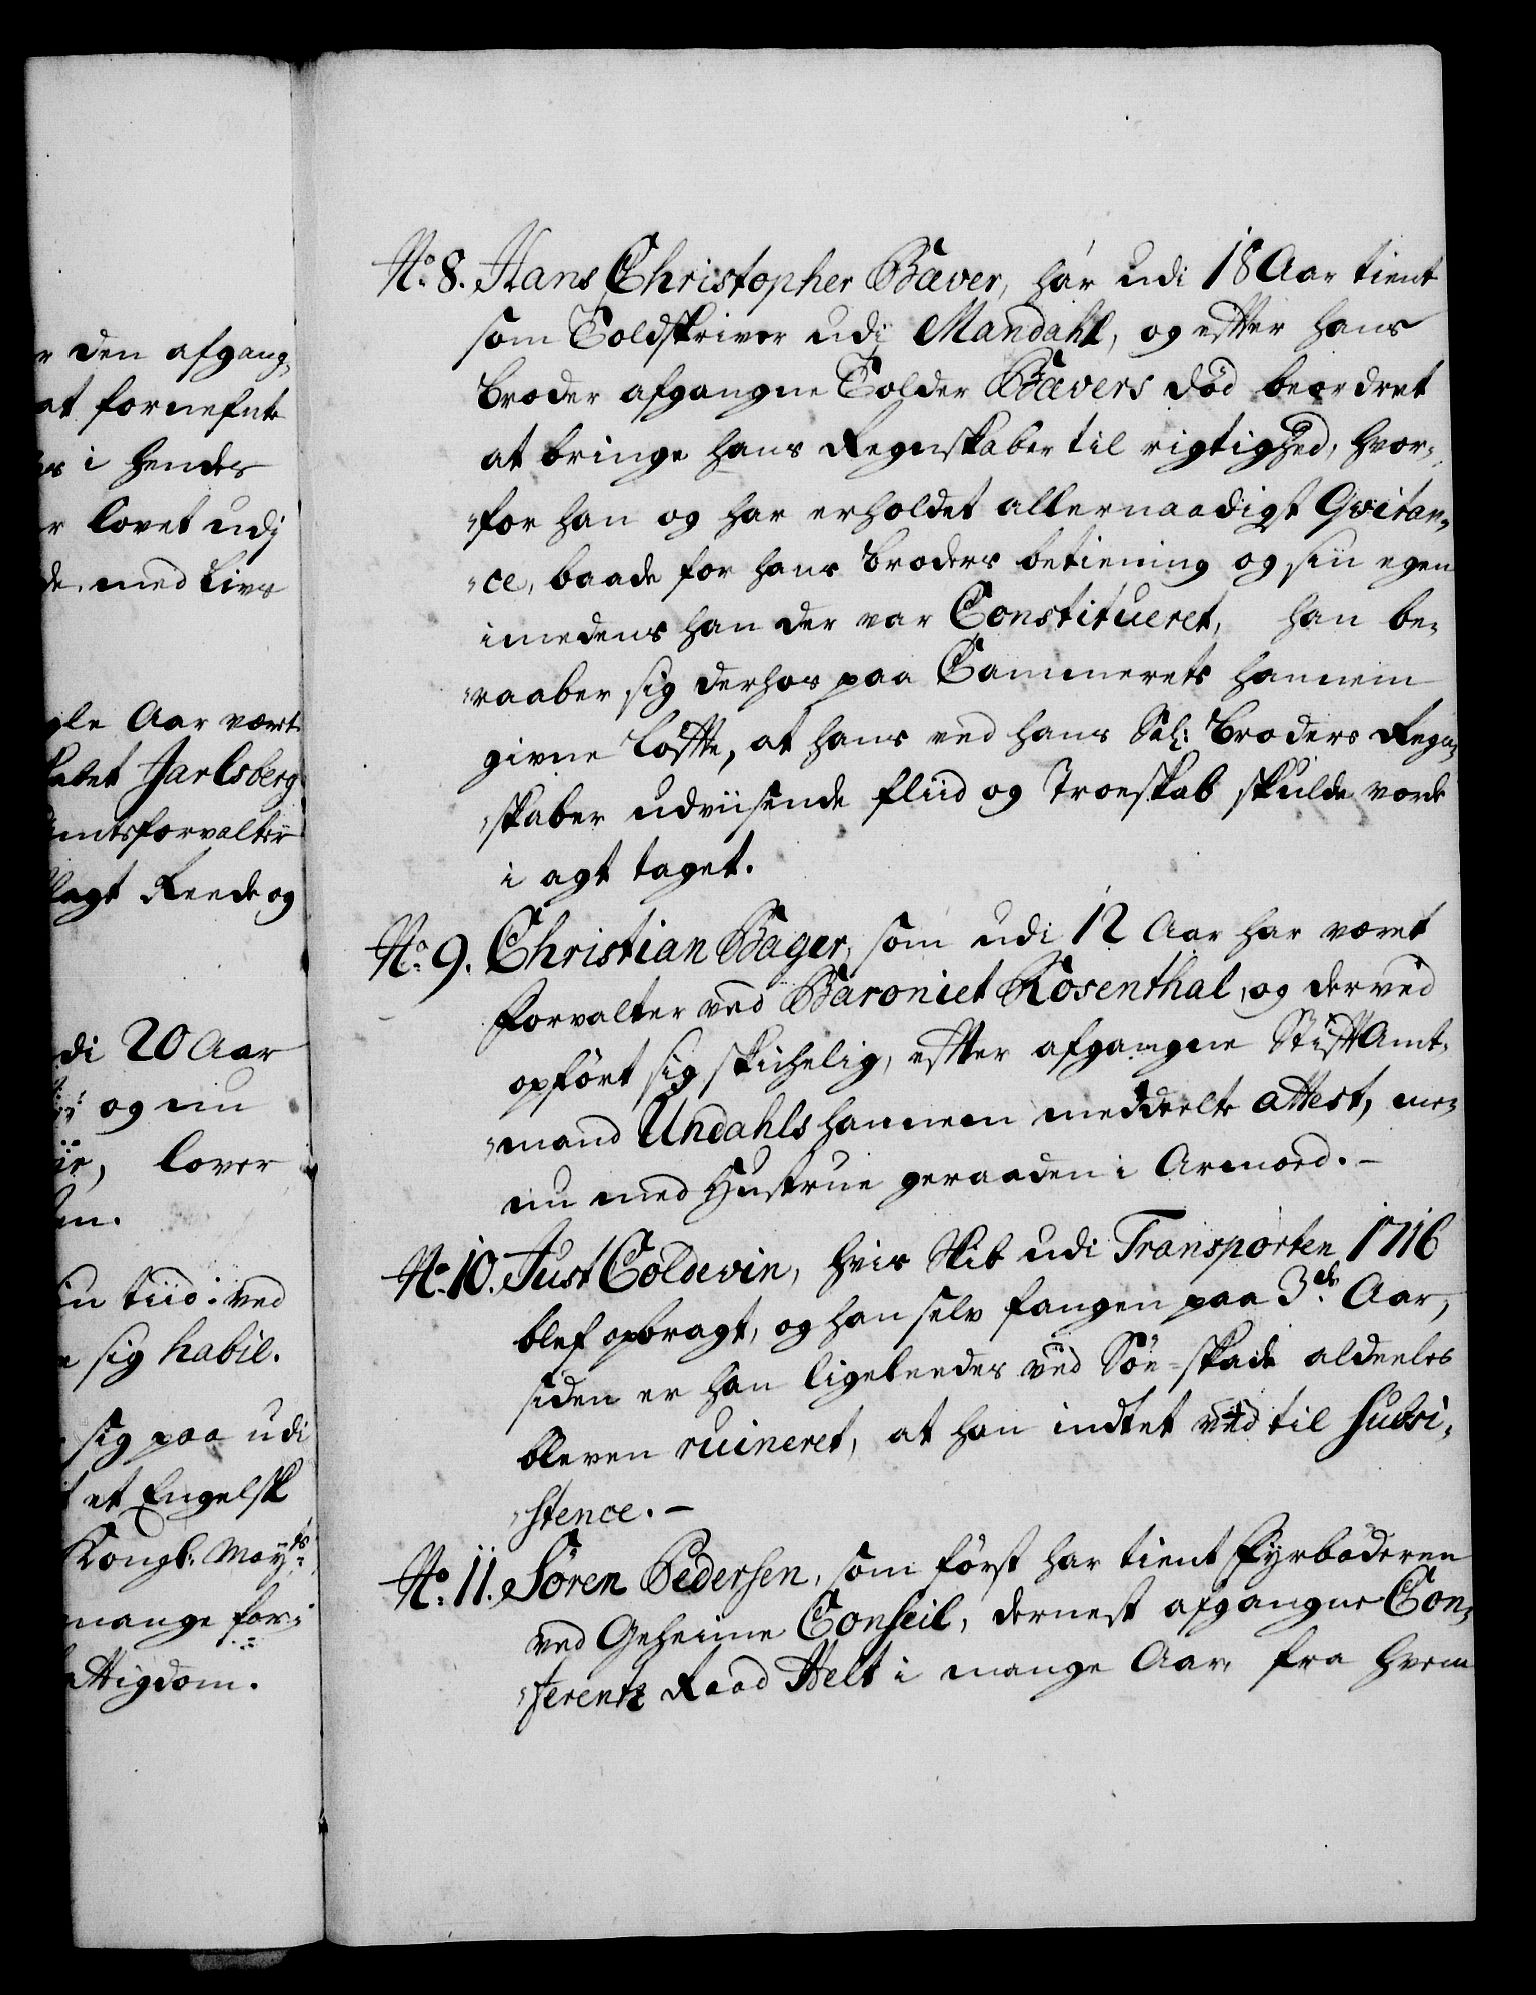 r den afgang,
at fornefnte
es i hendes
r lovet udj
de, med Livs
gle Aar vært
skabet Jarlsberg
Amtsforvalter
lagt Reede og
di 20 Aar
og nu
iie, lover
en.
in tiid: ved
e sig habil.
sig paa udi
t et Engelsk
Kongl: Mayts:
mange for:
attigdom.
No. 8. Hans Christopher Bæver, har udi 18 Aar tient
som Toldskriver udj Mandahl, og efter hans
Broder afgangne Tolder Bævers død beordret
at bringe hans Regnskaber til rigtighed, hvor,,
,,for han og har erholdet allernaadigst Qvitan,,
,,ce, baade for hans Broders betiening og siin egen
imedens han der var Constitueret, han be,,
,,raaber sig derhos paa Cammerets hannem
givne Løfte, at hans ved hans Sal: Broders Regn,,
,,skaber udviisende fliid og Troeskab skulde vorde
i agt taget.
No. 9. Christian Bager, som udi 12 Aar har været
Forvalter ved Baroniet Rosenthal, og derved
opført sig skichelig, efter afgangne Stift Amt,,
,,mand Undahls hannem meddeelte attest, men
nu med Hustrue geraaden i Armoed. -
No. 10. Just Coldevin, hvis Skib udi Transporten 1716
blef opbragt, og han selv fangen paa 3de Aar,
siden er han ligeleedes ved Søe-skade aldeeles
bleven ruineret, at han indtet ved til Subsi,,
,,stence. -
No. 11. Søren Pedersen, som først har tient Fyrbøderen
ved Geheime Conseil, dernest afgangne Con,,
,,ferentz Raad Helt i mange Aar, fra hvem